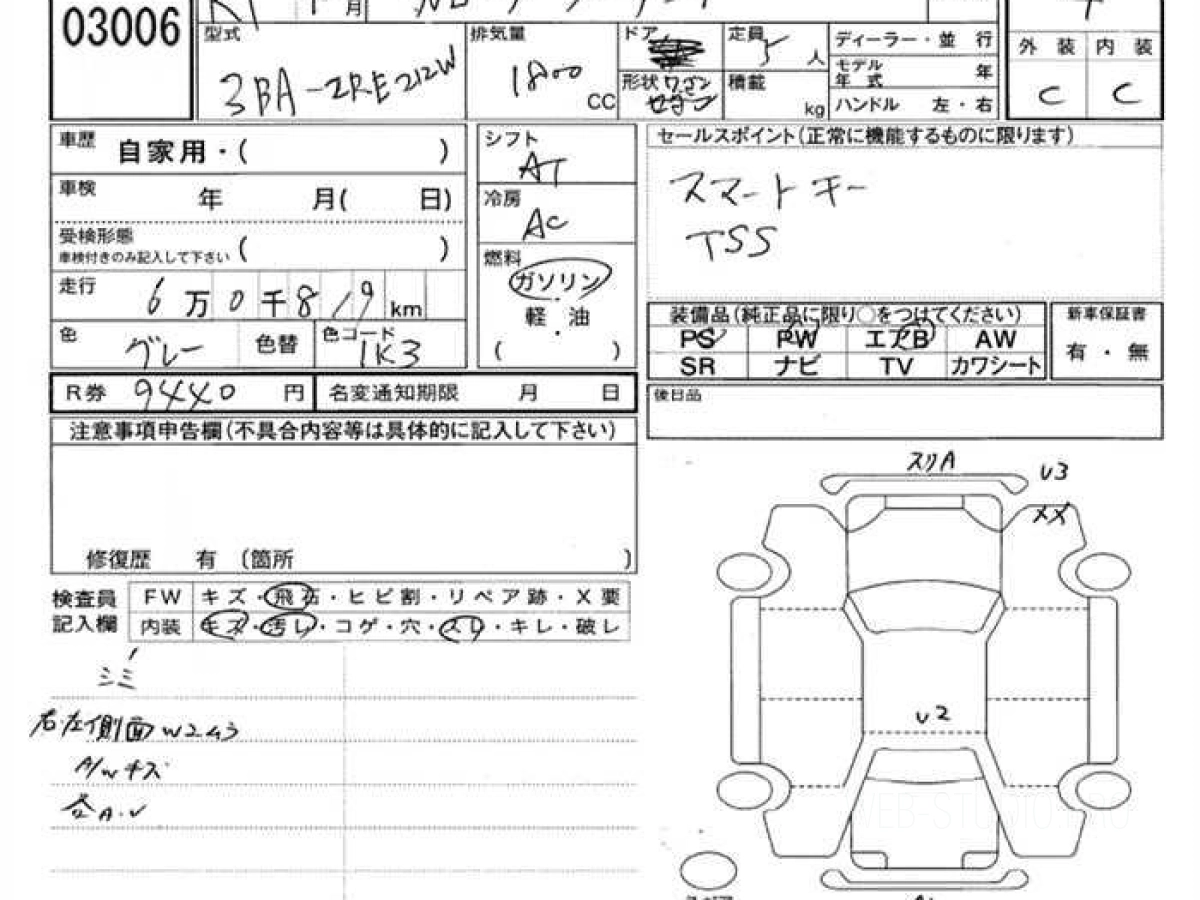 03006
R1 月
型式 3BA-ZRE212W
排気量 1800 CC
ドア
形状 ワゴン
定員 5 人
積載 kg
ディーラー・並 行
モデル年式 年
ハンドル 左・右
外 装 内 装
C C
車歴 自家用・( )
車検 年 月( 日)
受検形態
車検付きのみ記入して下さい ( )
走行 6万0千819 km
色 グレー 色替 色コード 1K3
シフト AT
冷房 AC
燃料
ガソリン
軽・油
( )
セールスポイント(正常に機能するものに限ります)
スマートキー
TSS
装備品(純正品に限り○をつけてください)
PS PW エアB AW
SR ナビ TV カワシート
新車保証書
有・無
R券 9440 円 名変通知期限 月 日
後日品
注意事項申告欄(不具合内容等は具体的に記入して下さい)
修復歴 有 (箇所 )
検査員記入欄
FW キズ・飛石・ヒビ割・リペア跡・X要
内装 キズ・汚レ・コゲ・穴・スレ・キレ・破レ
シミ
右左側面W2U3
A/Wキズ
各A.U
スリA
U3
XX
U2
WEB-STUDIO.PRO